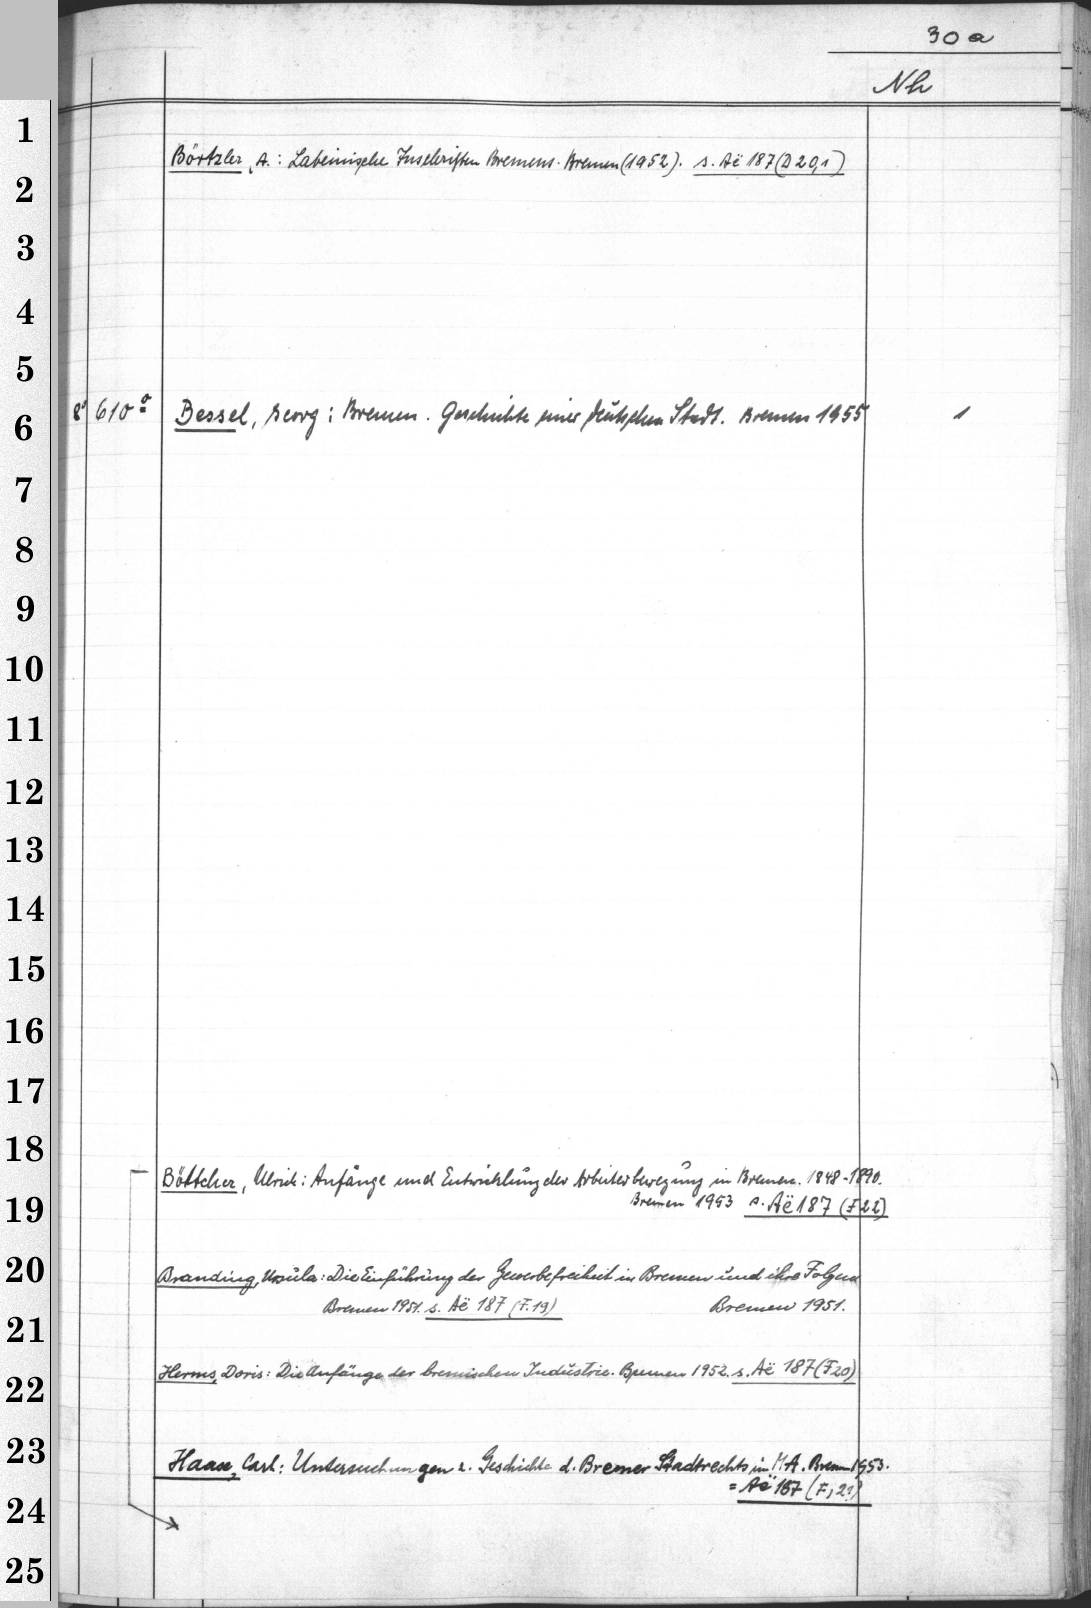 30a
Nh
1
Börtzler, A.: Lateinische Inschriften Bremens. Bremen (1952). s. Aë 187 (D 20,1)
2
3
4
5
8° 610ᵒ Bessel, Georg: Bremen. Geschichte einer deutschen Stadt. Bremen 1955 1
6
7
8
9
10
11
12
13
14
15
16
17
18
Böttcher, Ulrich: Anfänge und Entwicklung der Arbeiterbewegung in Bremen. 1848-1890.
19 Bremen 1953 s. Aë 187 (F 22)
20 Branding, Ursula: Die Einführung der Gewerbefreiheit in Bremen und ihre Folgen
Bremen 1951. s. Aë 187 (F. 19) Bremen 1951.
21
Herms, Doris: Die Anfänge der bremischen Industrie. Bremen 1952. s. Aë 187 (F 20)
22
23 Haase, Carl: Untersuchungen z. Geschichte d. Bremer Stadtrechts im MA. Bremen 1953.
= Aë 187 (F, 21)
24
25